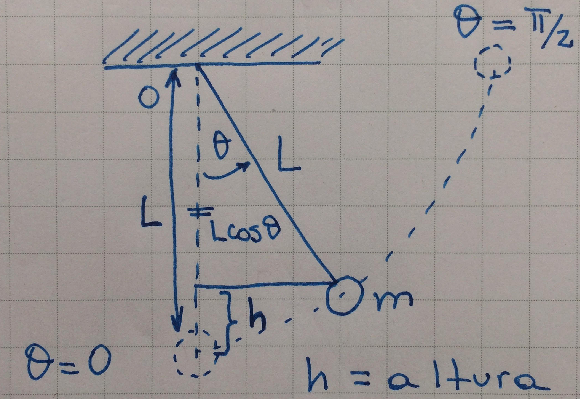 θ = π/2
O
θ
L
L
Lcosθ
h
m
θ = 0
h = altura